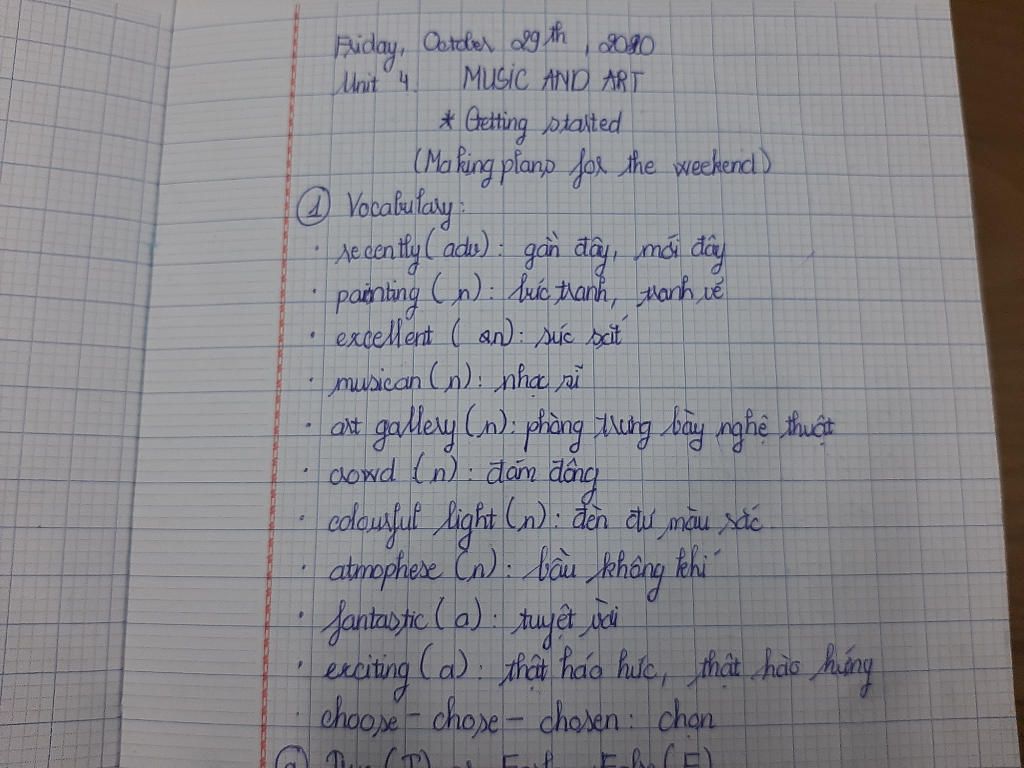 Friday, October 29th, 2020
Unit 4 MUSIC AND ART
* Getting started
(Making plans for the weekend)
① Vocabulary:
· recently (adv): gần đây, mới đây
· painting (n): bức tranh, tranh vẽ
· excellent ( an): xúc xắt
· musican (n): nhạc sĩ
· art gallery (n): phòng trưng bày nghệ thuật
· crowd (n): đám đông
· colourful light (n): đèn đủ màu sắc
· atmophese (n): bầu không khí
· fantastic (a): tuyệt vời
· exciting (a): thật háo hức, thật hào hứng
choose - chose - chosen: chọn